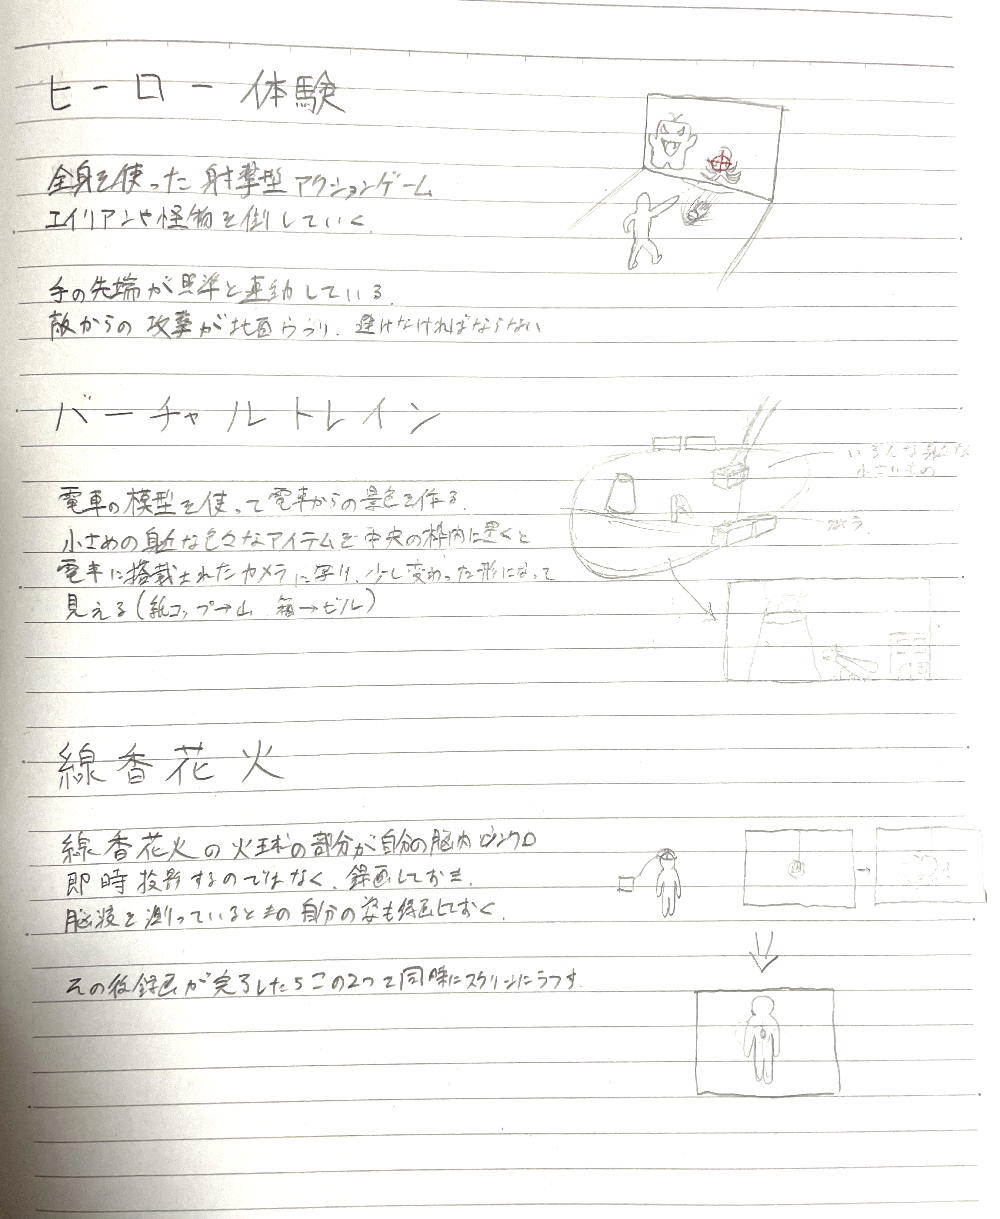 ヒーロー体験
全身を使った射撃型アクションゲーム
エイリアンや怪物を倒していく。
手の先端が照準と連動している。
敵からの攻撃が地面うつり、避けなければならない
バーチャルトレイン
いろんな身近な
小さいもの
電車の模型を使って電車からの景色を作る。
小さめの身近な色々なアイテムを中央の枠内に置くと
電車に搭載されたカメラに写り、少し変わった形になって
見える(紙コップ→山 箱→ビル)
線香花火
線香花火の火球の部分が自分の脳内とシンクロ
即時投影するのではなく、録画しておき、
脳波を測っているときの自分の姿も録画しておく。
その後録画が完了したらこの2つを同時にスクリーンにうつす。